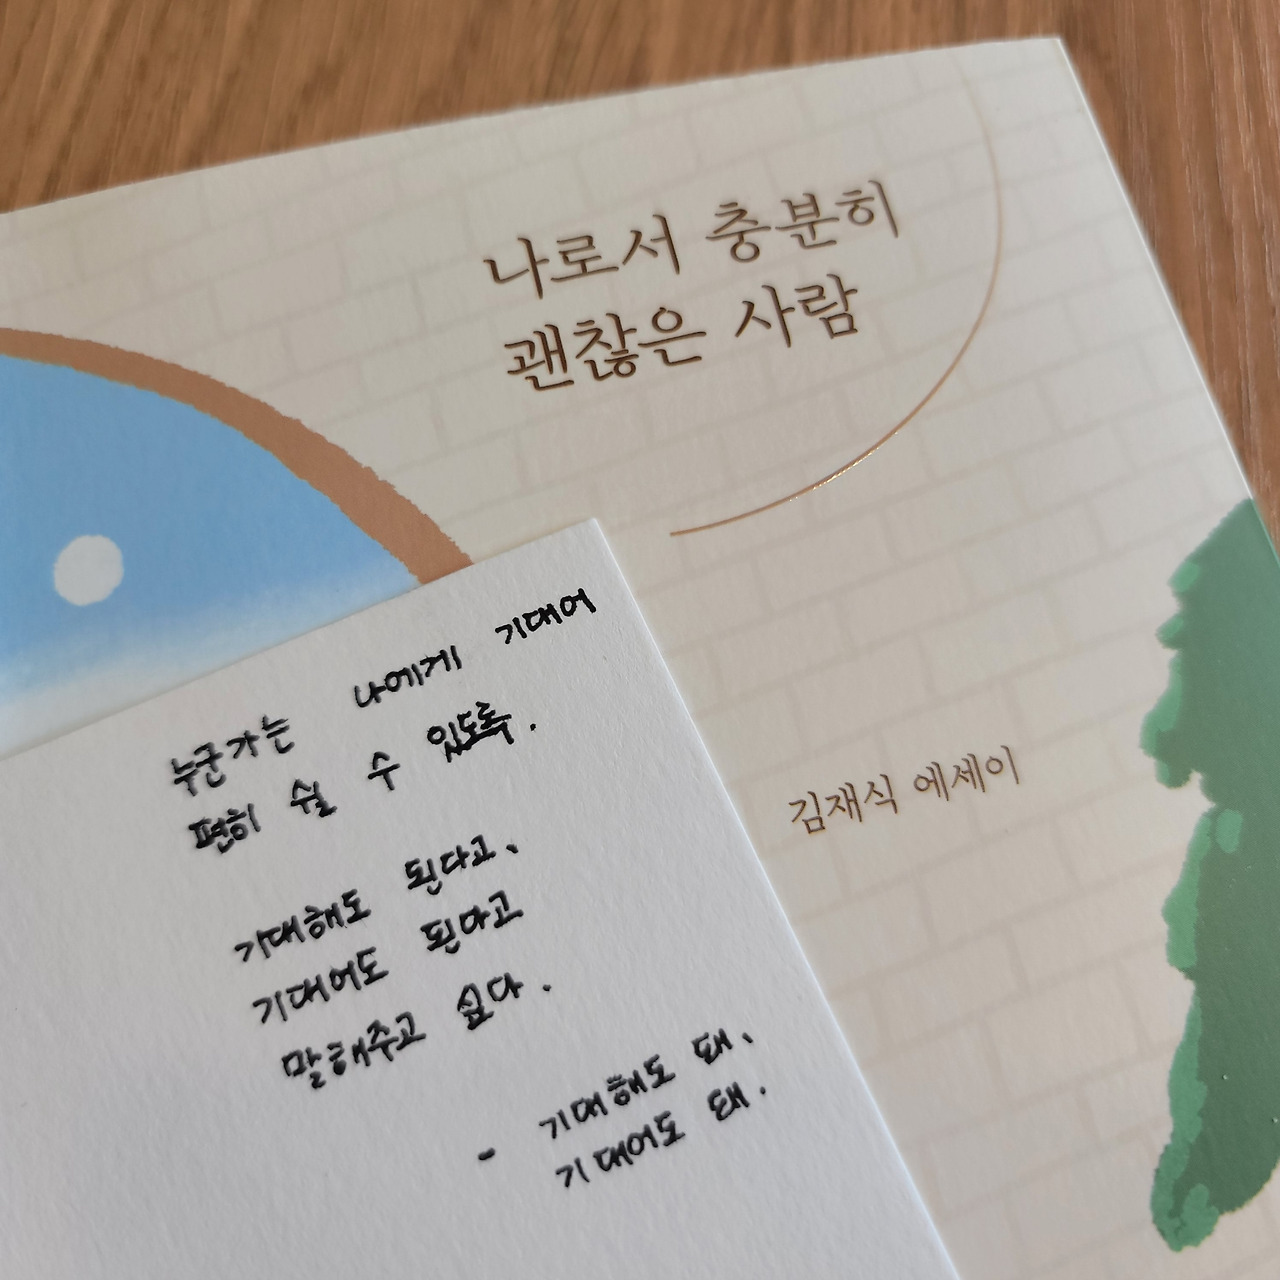 나로서 충분히
괜찮은 사람
김재식 에세이
누군가는 나에게 기대어
편히 쉴 수 있도록.
기대해도 된다고,
기대어도 된다고
말해주고 싶다.
- 기대해도 돼,
기대어도 돼.